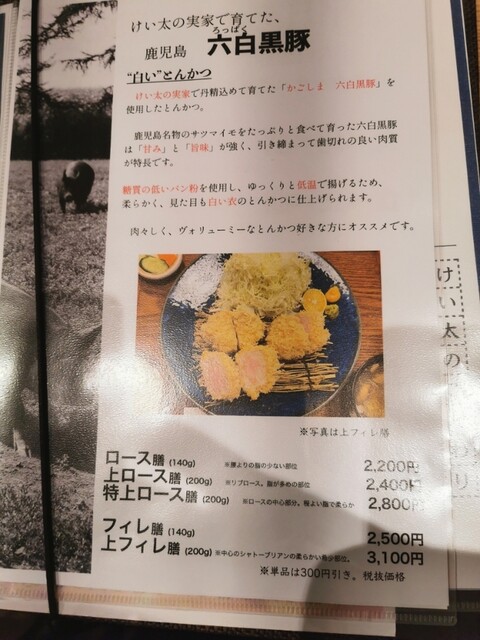 けい太の実家で育てた、
ろっぱく
鹿児島 六白黒豚
“白い”とんかつ
けい太の実家で丹精込めて育てた「かごしま 六白黒豚」を
使用したとんかつ。
鹿児島名物のサツマイモをたっぷりと食べて育った六白黒豚
は「甘み」と「旨味」が強く、引き締まって歯切れの良い肉質
が特長です。
糖質の低いパン粉を使用し、ゆっくりと低温で揚げるため、
柔らかく、見た目も白い衣のとんかつに仕上げられます。
肉々しく、ヴォリューミーなとんかつ好きな方にオススメです。
※写真は上フィレ膳
ロース膳 (140g) ※腰よりの脂の少ない部位 2,200円
上ロース膳 (200g) ※リブロース。脂が多めの部位 2,400円
特上ロース膳 (200g) ※ロースの中心部分。程よい脂で柔らか 2,800円
フィレ膳 (140g) 2,500円
上フィレ膳 (200g) ※中心のシャトーブリアンの柔らかい希少部位、 3,100円
※単品は300円引き。税抜価格
けい太の